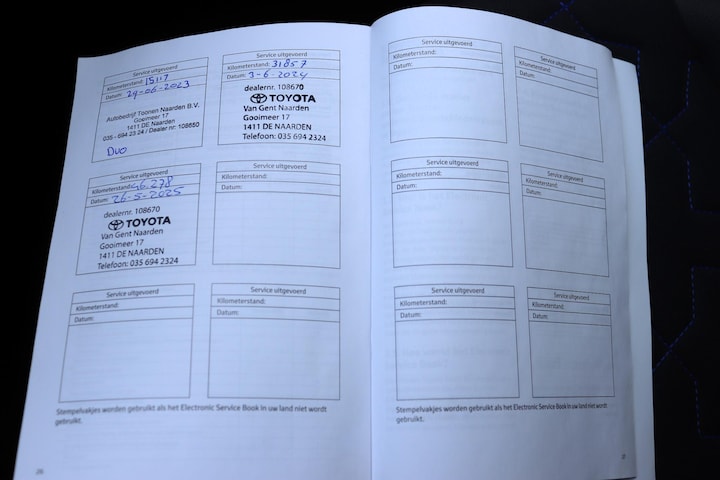 Service uitgevoerd
Kilometerstand: 15117
Datum: 29-06-2023
Autobedrijf Toonen Naarden B.V.
Gooimeer 17
1411 DE Naarden
035 - 694 23 24 / Dealer nr: 108650
Duo
Service uitgevoerd
Kilometerstand: 31857
Datum: 3-6-2024
dealernr. 108670
TOYOTA
Van Gent Naarden
Gooimeer 17
1411 DE NAARDEN
Telefoon: 035 694 2324
Service uitgevoerd
Kilometerstand: 46.278
Datum: 26-5-2025
dealernr. 108670
TOYOTA
Van Gent Naarden
Gooimeer 17
1411 DE NAARDEN
Telefoon: 035 694 2324
Service uitgevoerd
Kilometerstand:
Datum:
Service uitgevoerd
Kilometerstand:
Datum:
Service uitgevoerd
Kilometerstand:
Datum:
Stempelvakjes worden gebruikt als het Electronic Service Book in uw land niet wordt
gebruikt.
Service uitgevoerd
Kilometerstand:
Datum:
Service uitgevoerd
Kilometerstand:
Datum:
Service uitgevoerd
Kilometerstand:
Datum:
Service uitgevoerd
Kilometerstand:
Datum:
Service uitgevoerd
Kilometerstand:
Datum:
Service uitgevoerd
Kilometerstand:
Datum:
Stempelvakjes worden gebruikt als het Electronic Service Book in uw land niet wordt
gebruikt.